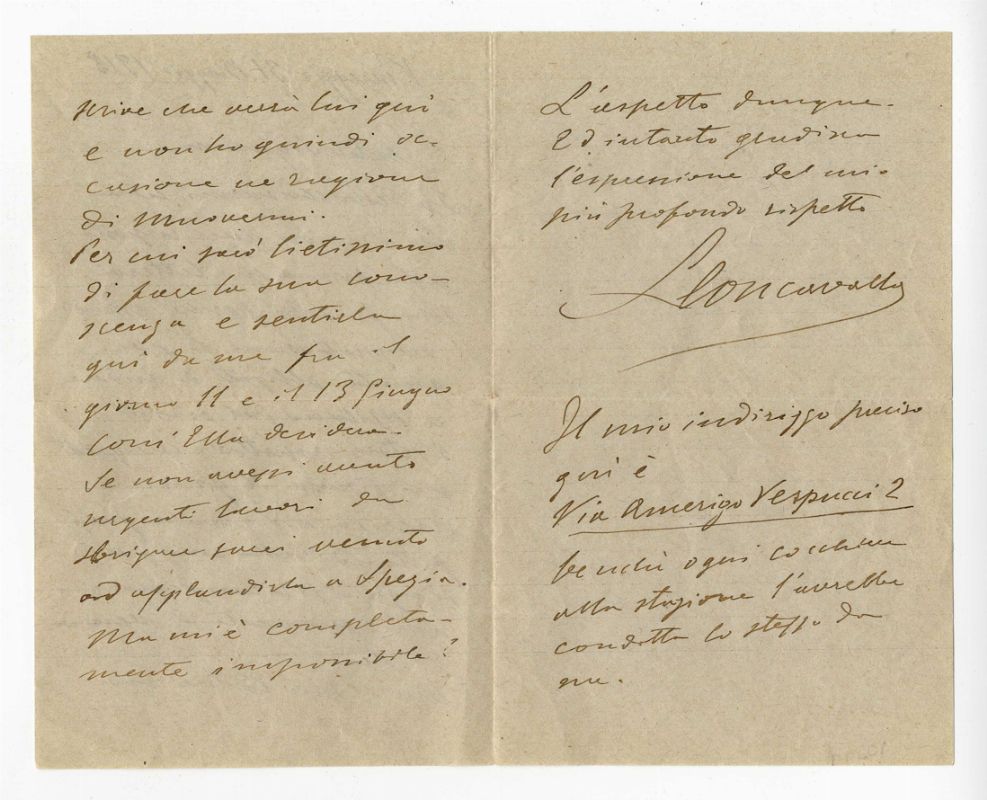 scrive che verrà lui qui
e non ho quindi oc-
casione ne ragione
di muovermi.
Per cui sarò lietissimo
di fare la sua cono-
scenza e sentirla
qui da me fra il
giorno 11 e il 13 Giugno
com' Ella desidera.
Se non avessi avuto
urgenti lavori da
sbrigare sarei venuto
ad applaudirla a Spezia.
Ma mi è completa-
mente impossibile!
L'aspetto dunque.
Ed intanto gradisca
l'espressione del mio
più profondo rispetto
RLeoncavallo
Il mio indirizzo preciso
qui è
Via Amerigo Vespucci 2
benchè ogni cocchiere
alla stazione l'avrebbe
condotta lo stesso da
me.